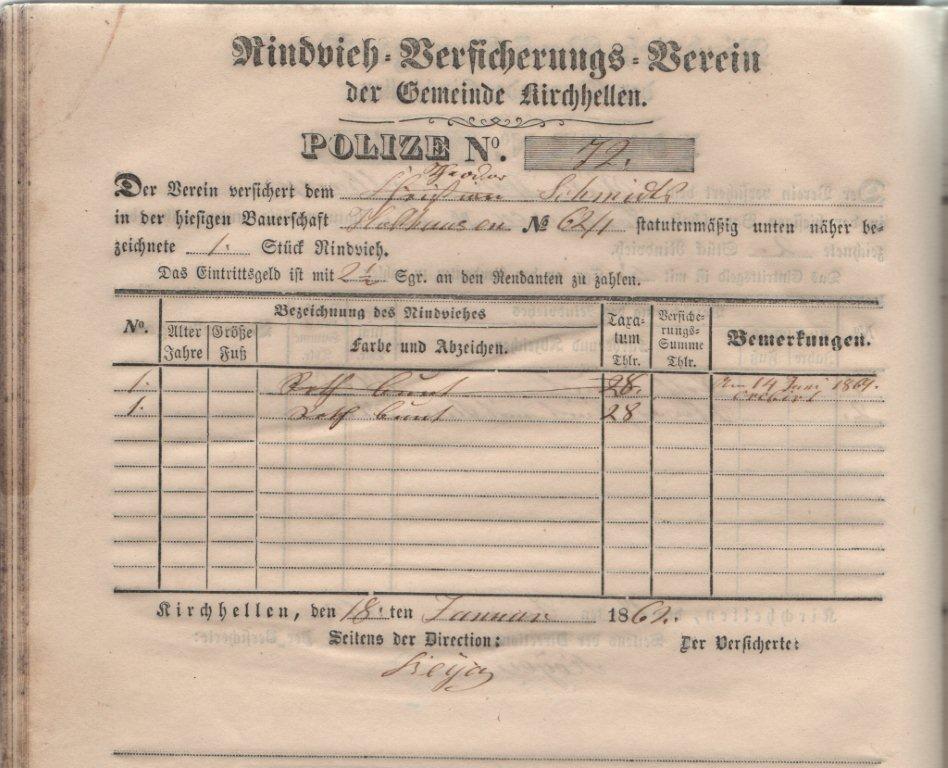 Rindvieh-Versicherungs-Verein
der Gemeinde Kirchhellen.
POLIZE No. 72.
Theodor
Der Verein versichert dem Christian Schmidt
in der hiesigen Bauerschaft No 62/1 statutenmäßig unten näher be-
zeichnete 1. Stück Rindvieh.
Das Eintrittsgeld ist mit 2 1/2 Sgr. an den Rendanten zu zahlen.
No. Bezeichnung des Rindviehes Taxa- Versiche- Bemerkungen.
Alter Größe Farbe und Abzeichen. tum rungs-
Jahre Fuß Thlr. Summe
Thlr.
1. Roth bunt 28. Am 14 Juni 1864.
crepirt
1. Roth bunt 28
Kirchhellen, den 18.ten Januar 1862.
Seitens der Direction: Der Versicherte: